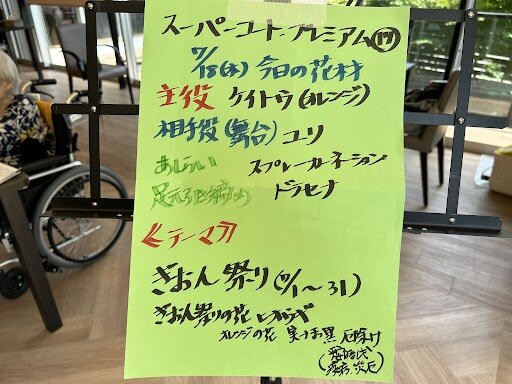 スーパーコート プレミアム⑰
7/18(木) 今日の花材
主役 ケイトウ(オレンジ)
相手役(舞台) ユリ
あしらい スプレーカーネーション
足元 ドラセナ
≪テーマ≫
ぎおん祭り(7/1〜31)
ぎおん祭りの花
オレンジの花 実はお黒 厄除け